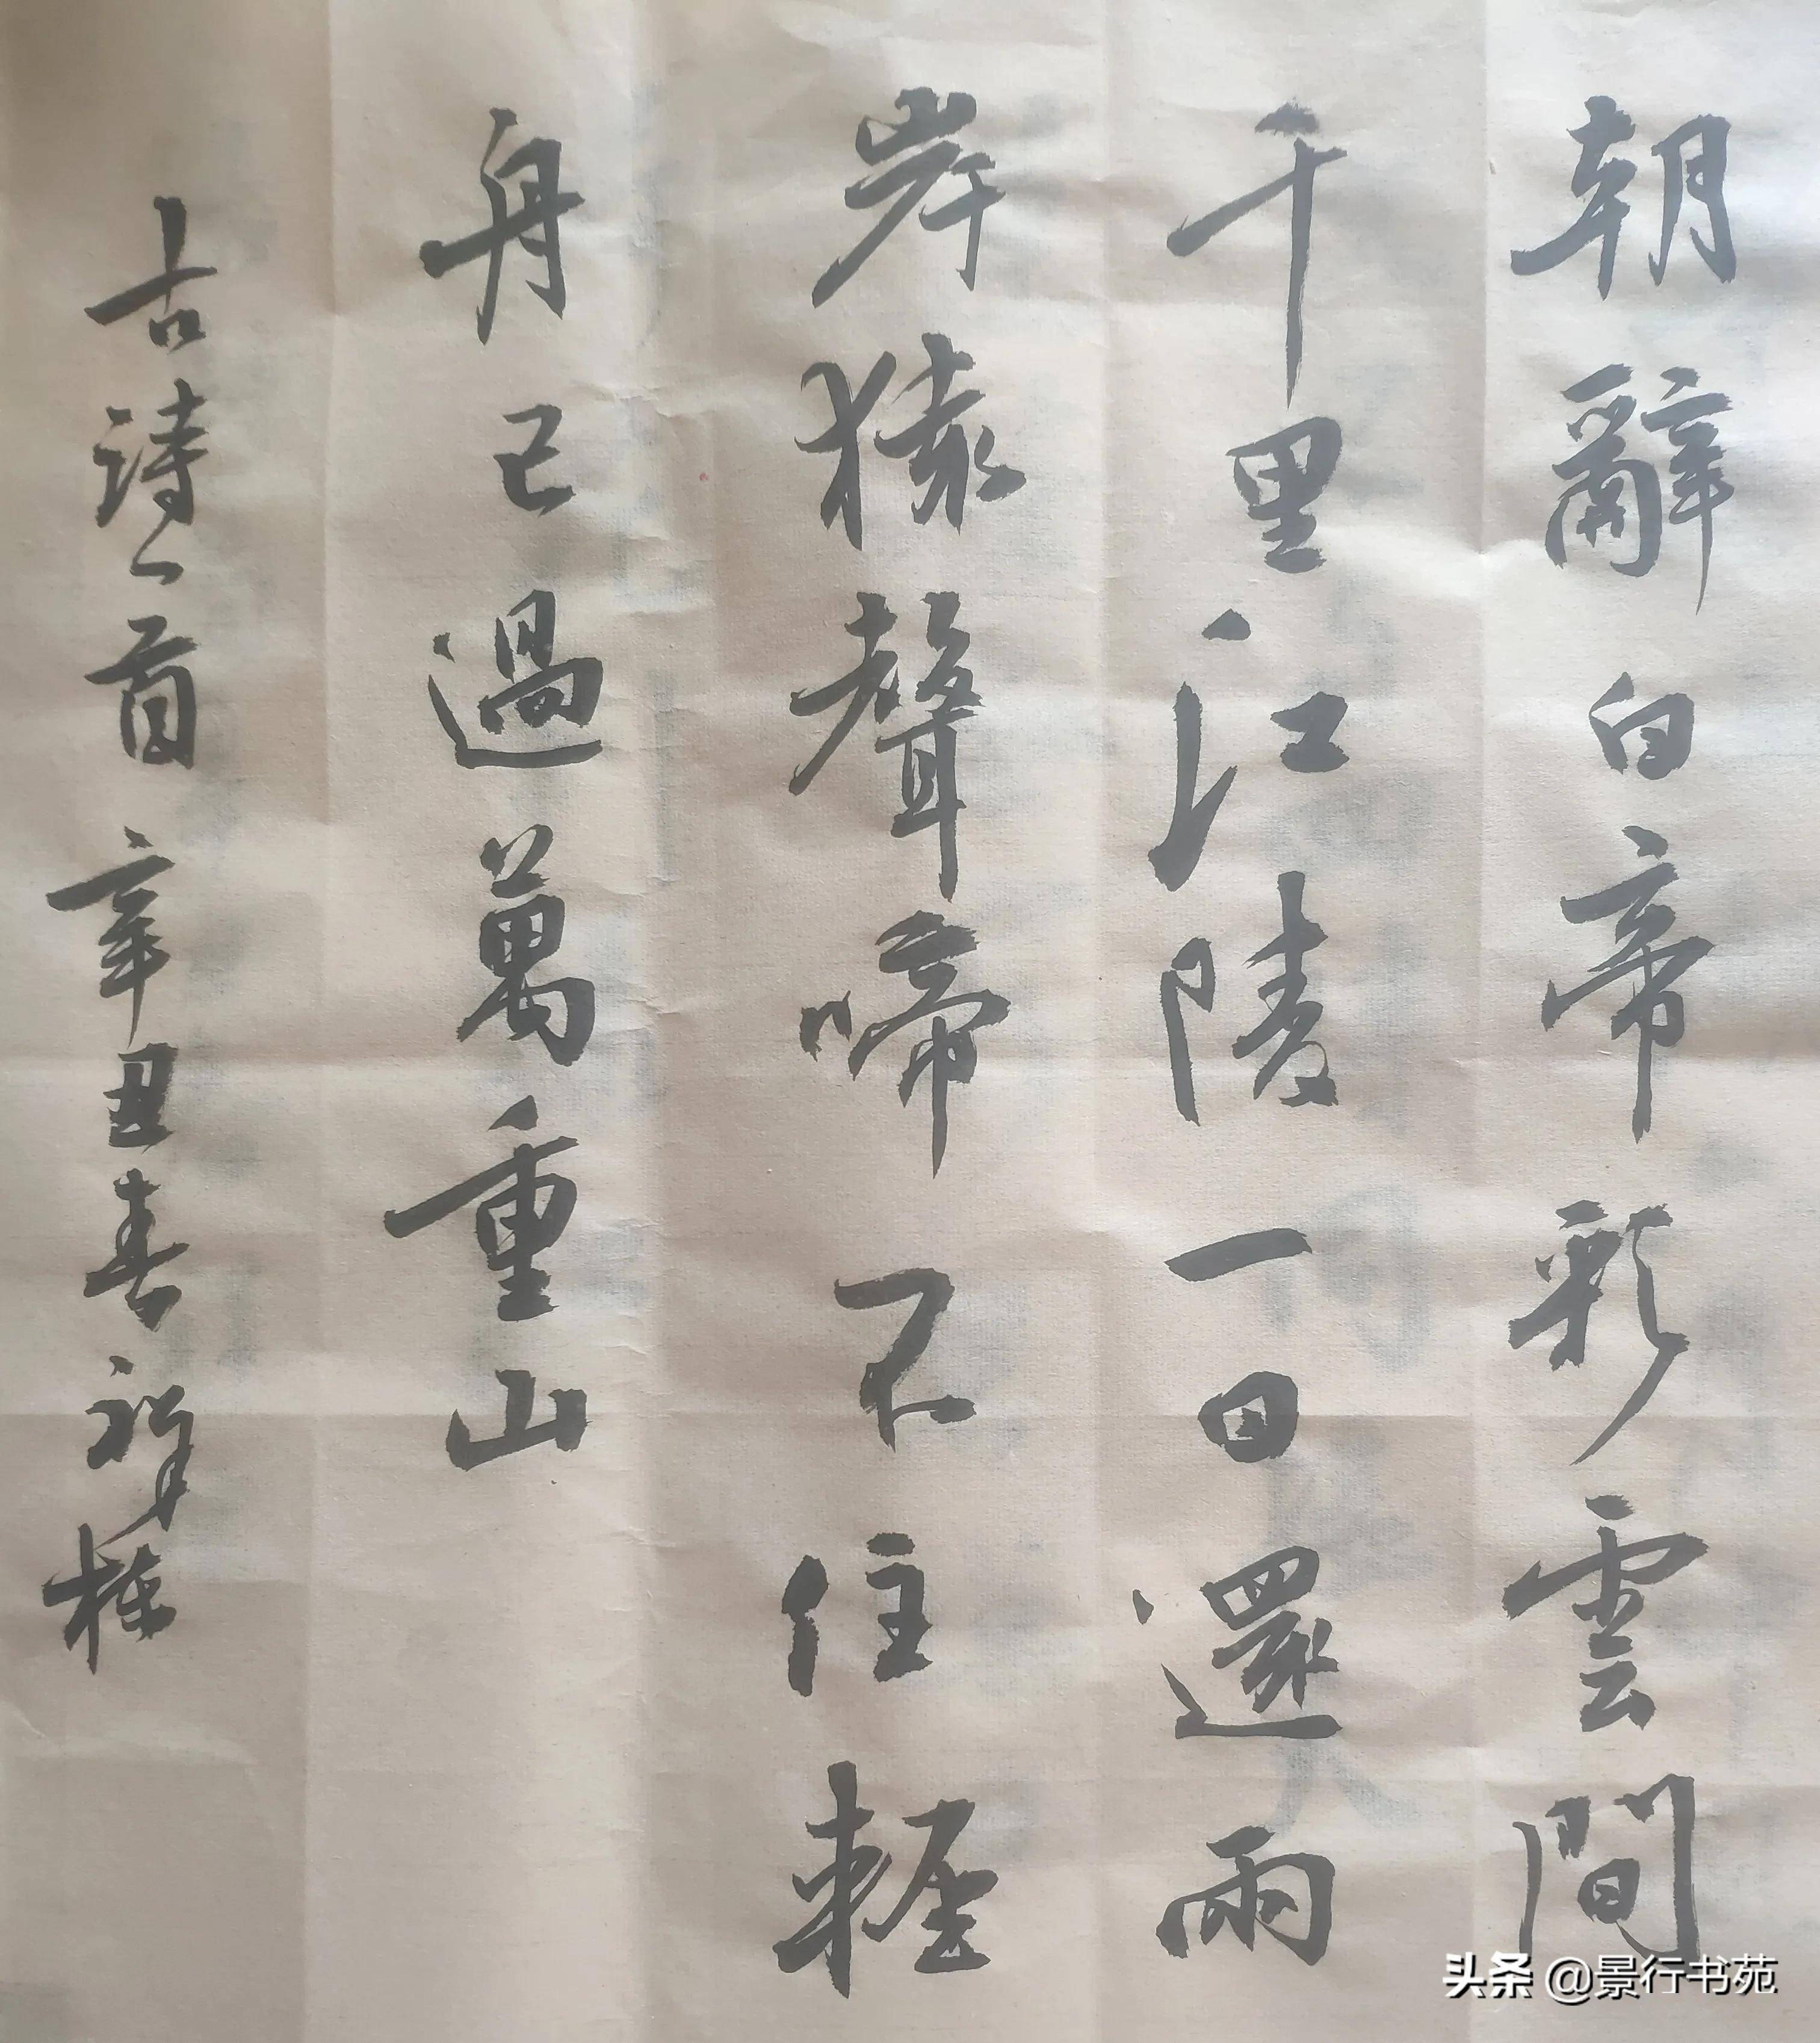 朝辭白帝彩雲間
千里江陵一日還兩
岸猿聲啼不住輕
舟已過萬重山
古詩一首辛丑春祥棟
头条 @景行书苑